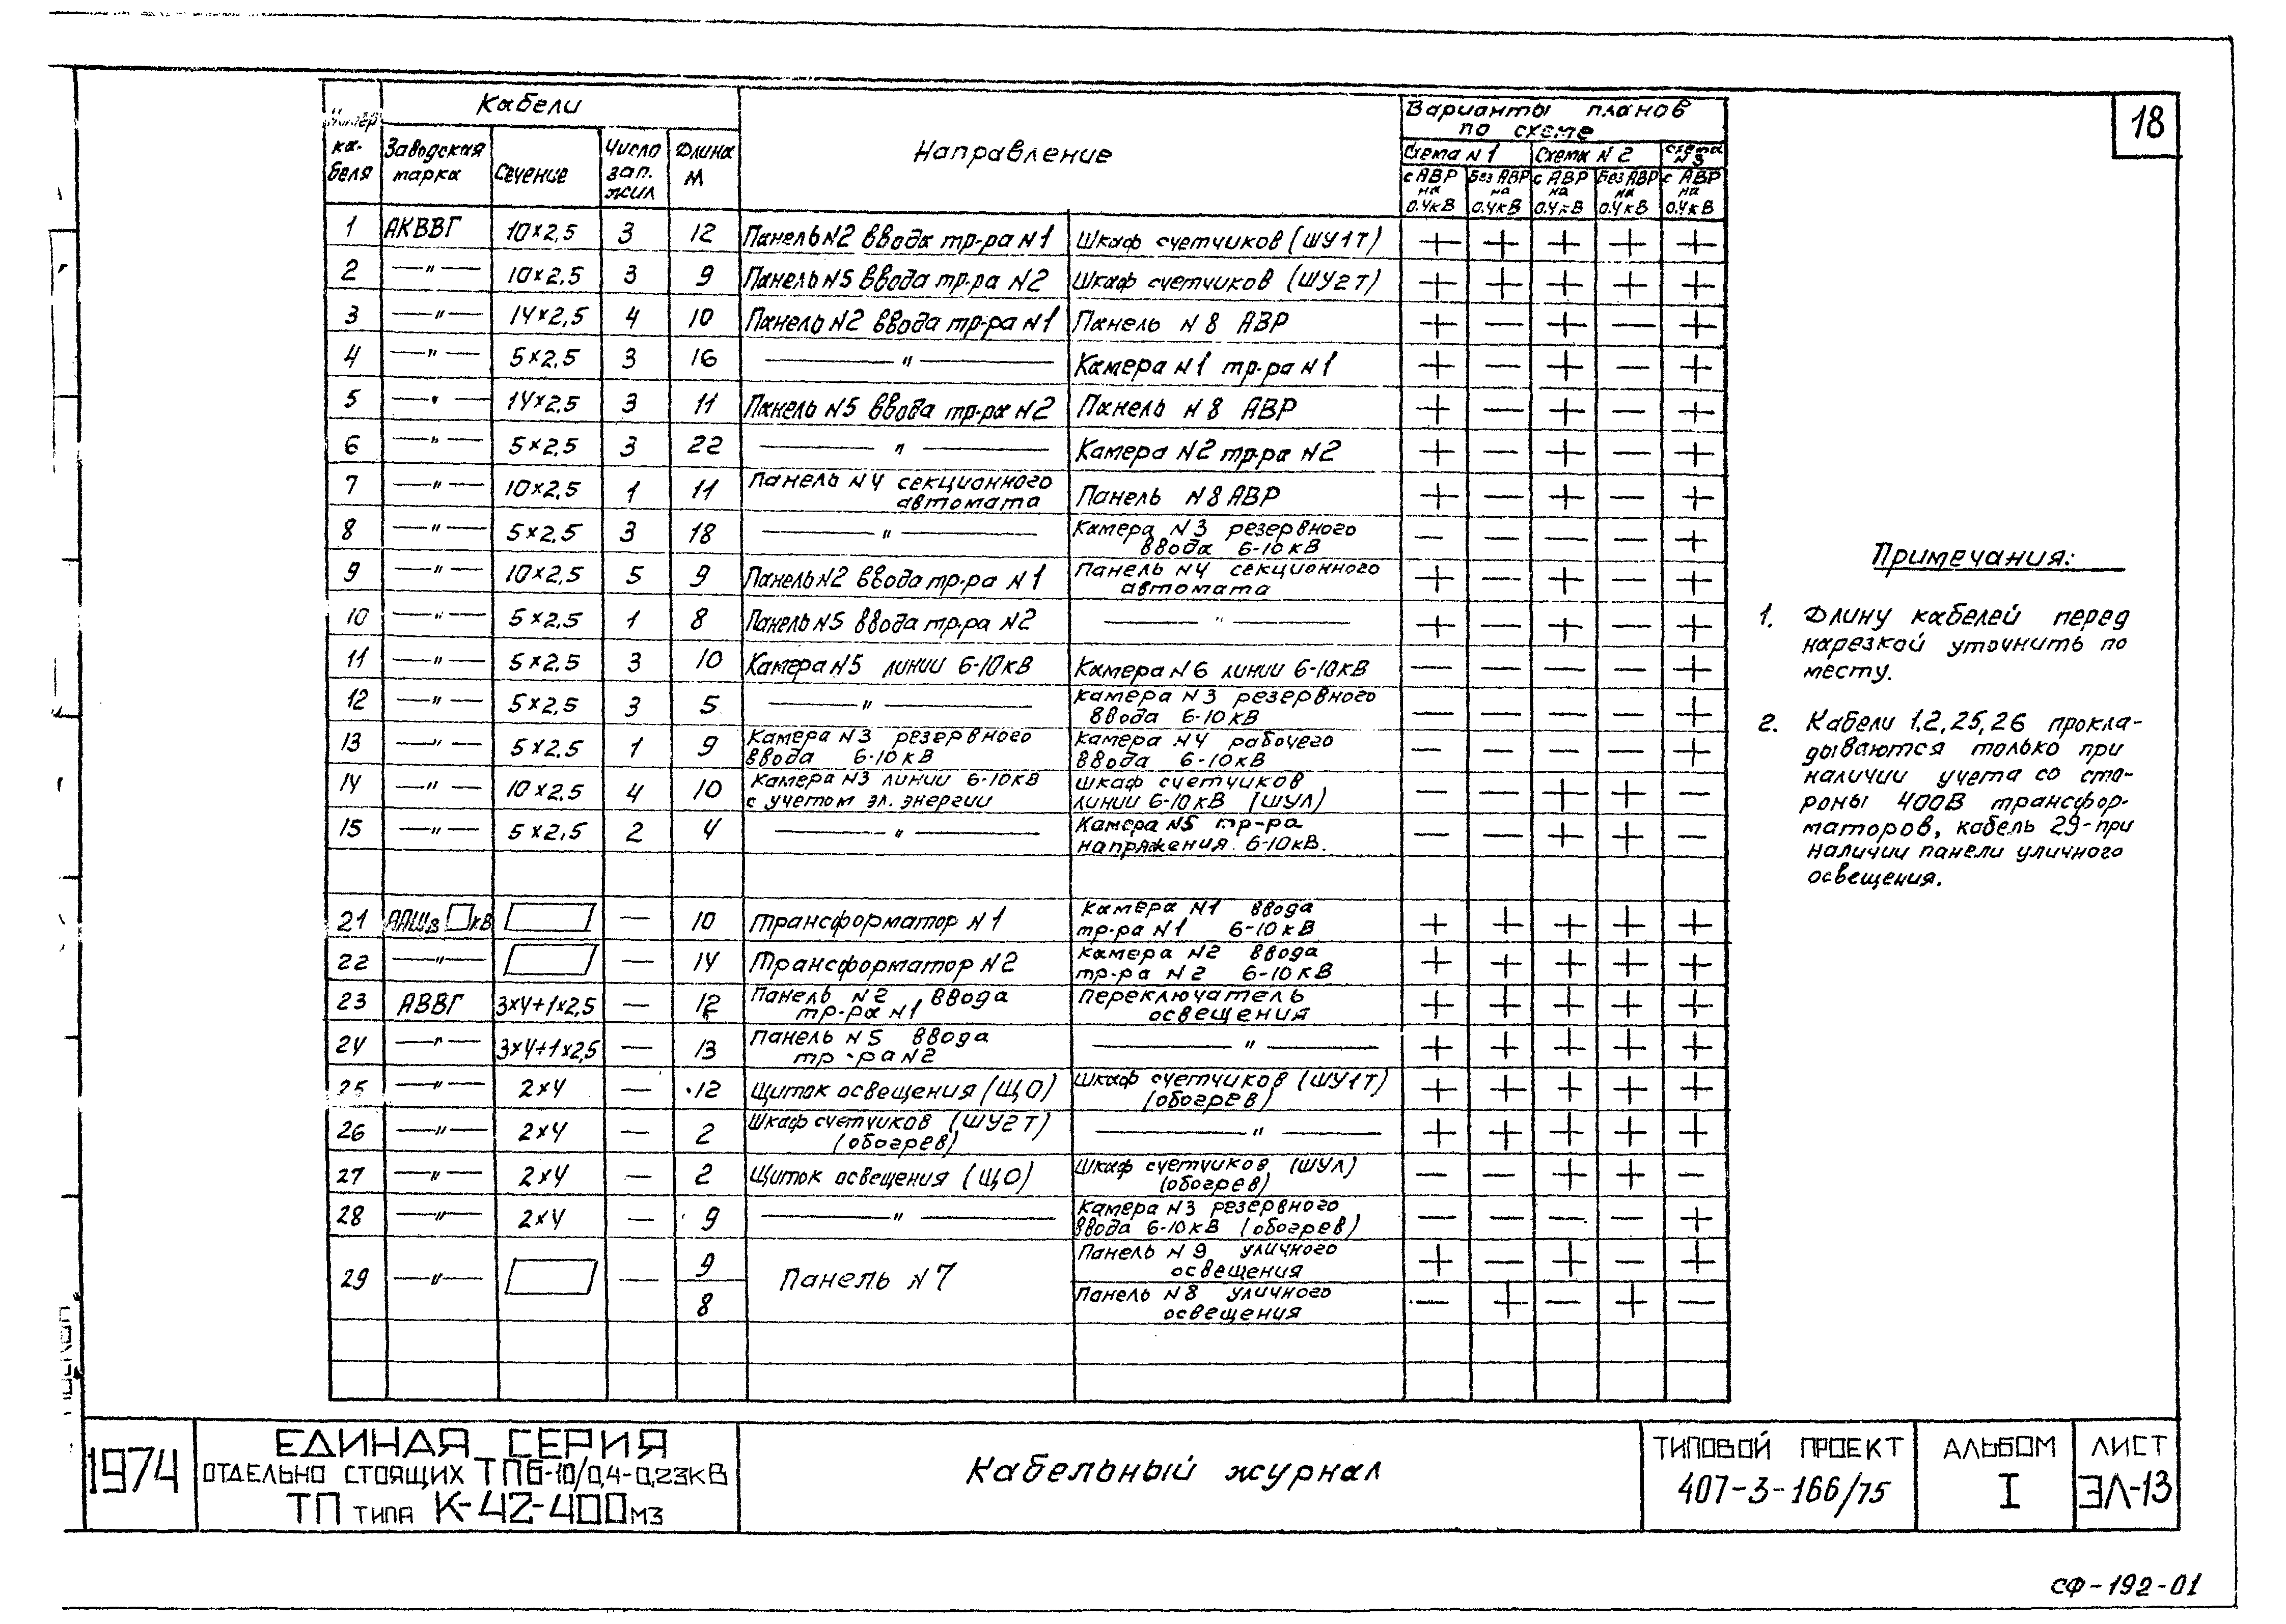 18
Номер ка-беля | Кабели | Направление | Варианты планов по схеме
Заводская марка | Сечение | Число зап. жил | Длина м | Схема N1 | Схема N2 | Схема N3
с АВР на 0.4кВ | Без АВР на 0.4кВ | с АВР на 0.4кВ | Без АВР на 0.4кВ | с АВР на 0.4кВ
1 | АКВВГ | 10×2,5 | 3 | 12 | Панель N2 ввода тр-ра N1 | Шкаф счетчиков (ШУ1Т) | + | + | + | + | +
2 | —"— | 10×2,5 | 3 | 9 | Панель N5 ввода тр-ра N2 | Шкаф счетчиков (ШУ2Т) | + | + | + | + | +
3 | —"— | 14×2,5 | 4 | 10 | Панель N2 ввода тр-ра N1 | Панель N8 АВР | + | — | + | — | +
4 | —"— | 5×2,5 | 3 | 16 | —"— | Камера N1 тр-ра N1 | + | — | + | — | +
5 | —"— | 14×2,5 | 3 | 11 | Панель N5 ввода тр-ра N2 | Панель N8 АВР | + | — | + | — | +
6 | —"— | 5×2,5 | 3 | 22 | —"— | Камера N2 тр-ра N2 | + | — | + | — | +
7 | —"— | 10×2,5 | 1 | 11 | Панель N4 секционного автомата | Панель N8 АВР | + | — | + | — | +
8 | —"— | 5×2,5 | 3 | 18 | —"— | Камера N3 резервного ввода 6-10кВ | — | — | — | — | +
9 | —"— | 10×2,5 | 5 | 9 | Панель N2 ввода тр-ра N1 | Панель N4 секционного автомата | + | — | + | — | +
10 | —"— | 5×2,5 | 1 | 8 | Панель N5 ввода тр-ра N2 | —"— | + | — | + | — | +
11 | —"— | 5×2,5 | 3 | 10 | Камера N5 линии 6-10кВ | Камера N6 линии 6-10кВ | — | — | — | — | +
12 | —"— | 5×2,5 | 3 | 5 | —"— | Камера N3 резервного ввода 6-10кВ | — | — | — | — | +
13 | —"— | 5×2,5 | 1 | 9 | Камера N3 резервного ввода 6-10кВ | Камера N4 рабочего ввода 6-10кВ | — | — | — | — | +
14 | —"— | 10×2,5 | 4 | 10 | Камера N3 линии 6-10кВ с учетом эл. энергии | Шкаф счетчиков линии 6-10кВ (ШУЛ) | — | — | + | + | —
15 | —"— | 5×2,5 | 2 | 4 | —"— | Камера N5 тр-ра напряжения 6-10кВ. | — | — | + | + | —
21 | ААШв □кВ | □ | — | 10 | Трансформатор N1 | Камера N1 ввода тр-ра N1 6-10кВ | + | + | + | + | +
22 | —"— | □ | — | 14 | Трансформатор N2 | Камера N2 ввода тр-ра N2 6-10кВ | + | + | + | + | +
23 | АВВГ | 3×4+1×2,5 | — | 12 | Панель N2 ввода тр-ра N1 | Переключатель освещения | + | + | + | + | +
24 | —"— | 3×4+1×2,5 | — | 13 | Панель N5 ввода тр-ра N2 | —"— | + | + | + | + | +
25 | —"— | 2×4 | — | 12 | Щиток освещения (ЩО) | Шкаф счетчиков (ШУ1Т) (обогрев) | + | + | + | + | +
26 | —"— | 2×4 | — | 2 | Шкаф счетчиков (ШУ2Т) (обогрев) | —"— | + | + | + | + | +
27 | —"— | 2×4 | — | 2 | Щиток освещения (ЩО) | Шкаф счетчиков (ШУЛ) (обогрев) | — | — | + | + | —
28 | —"— | 2×4 | — | 9 | —"— | Камера N3 резервного ввода 6-10кВ (обогрев) | — | — | — | — | +
29 | —"— | □ | — | 9 | Панель N7 | Панель N9 уличного освещения | + | — | + | — | +
8 | Панель N8 уличного освещения | — | + | — | + | —
Примечания:
1. Длину кабелей перед
нарезкой уточнить по
месту.
2. Кабели 1,2,25,26 прокла-
дываются только при
наличии учета со сто-
роны 400В трансфор-
маторов, кабель 29-при
наличии панели уличного
освещения.
1974
ЕДИНАЯ СЕРИЯ
ОТДЕЛЬНО СТОЯЩИХ ТП6-10/0,4-0,23кВ
ТП ТИПА К-42-400м3
Кабельный журнал
ТИПОВОЙ ПРОЕКТ
407-3-166/75
АЛЬБОМ
I
ЛИСТ
ЭЛ-13
СФ-192-01